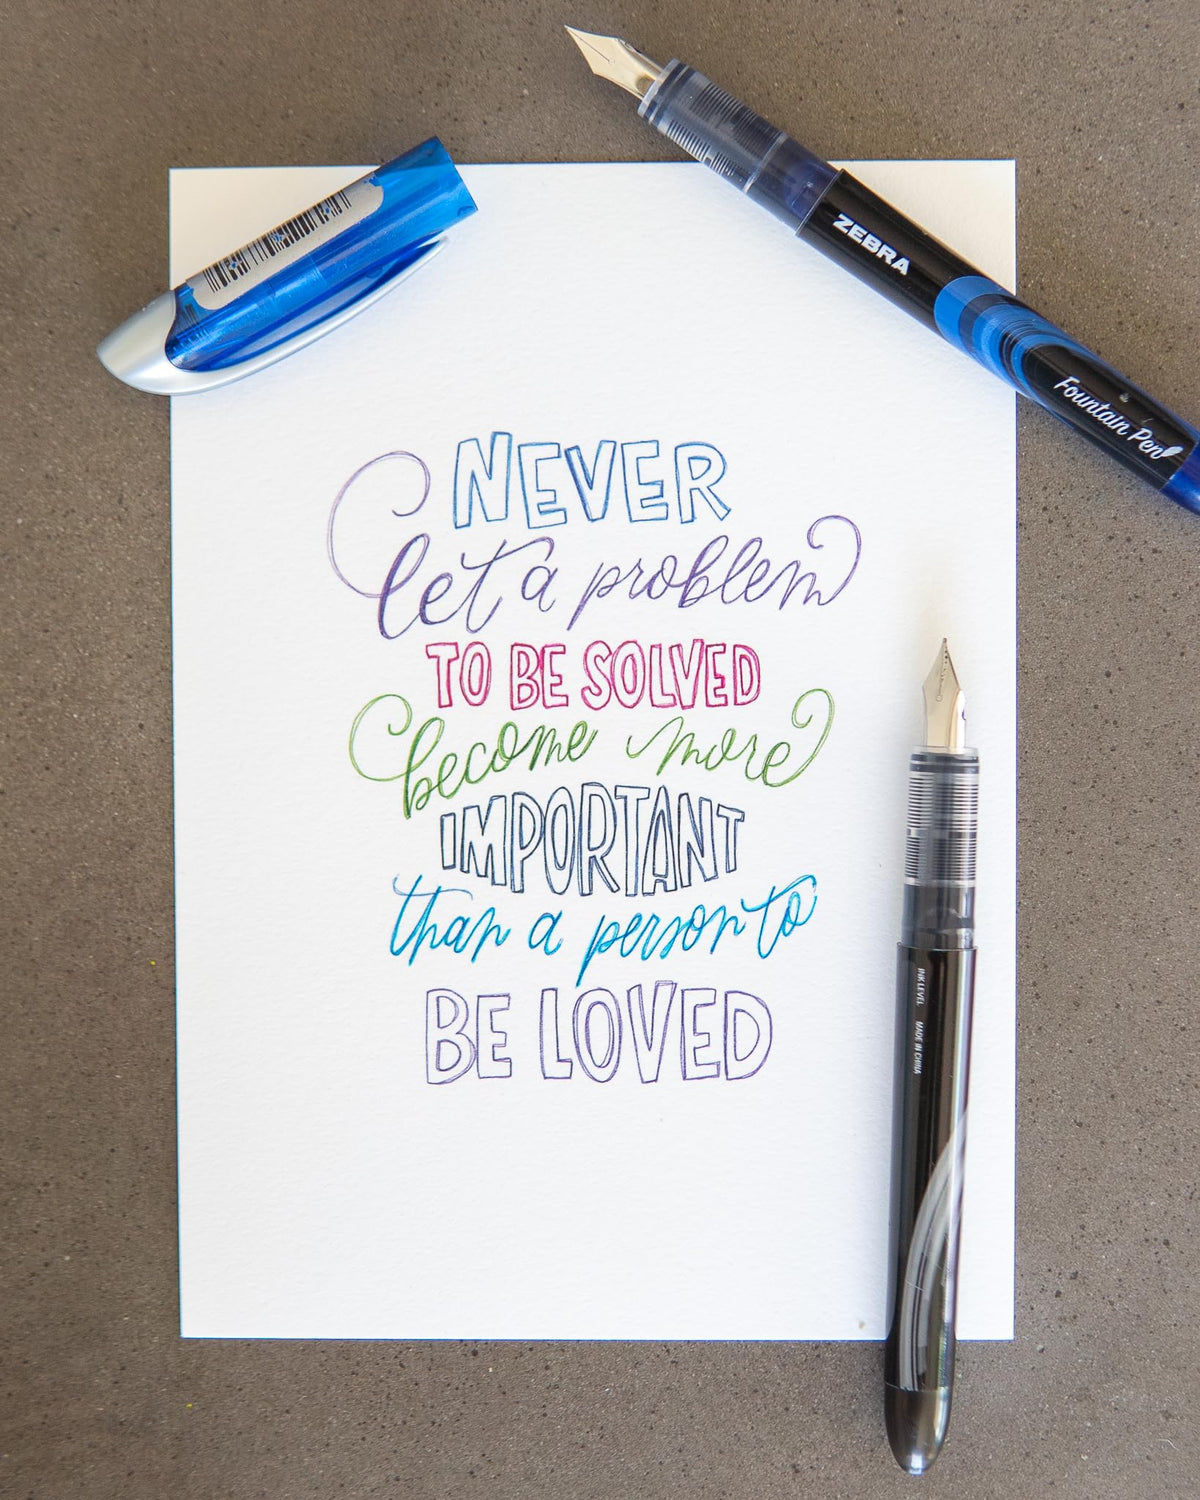 ZEBRA
Fountain Pen
NEVER
let a problem
TO BE SOLVED
become more
IMPORTANT
than a person to
BE LOVED
INK LEVEL MADE IN CHINA